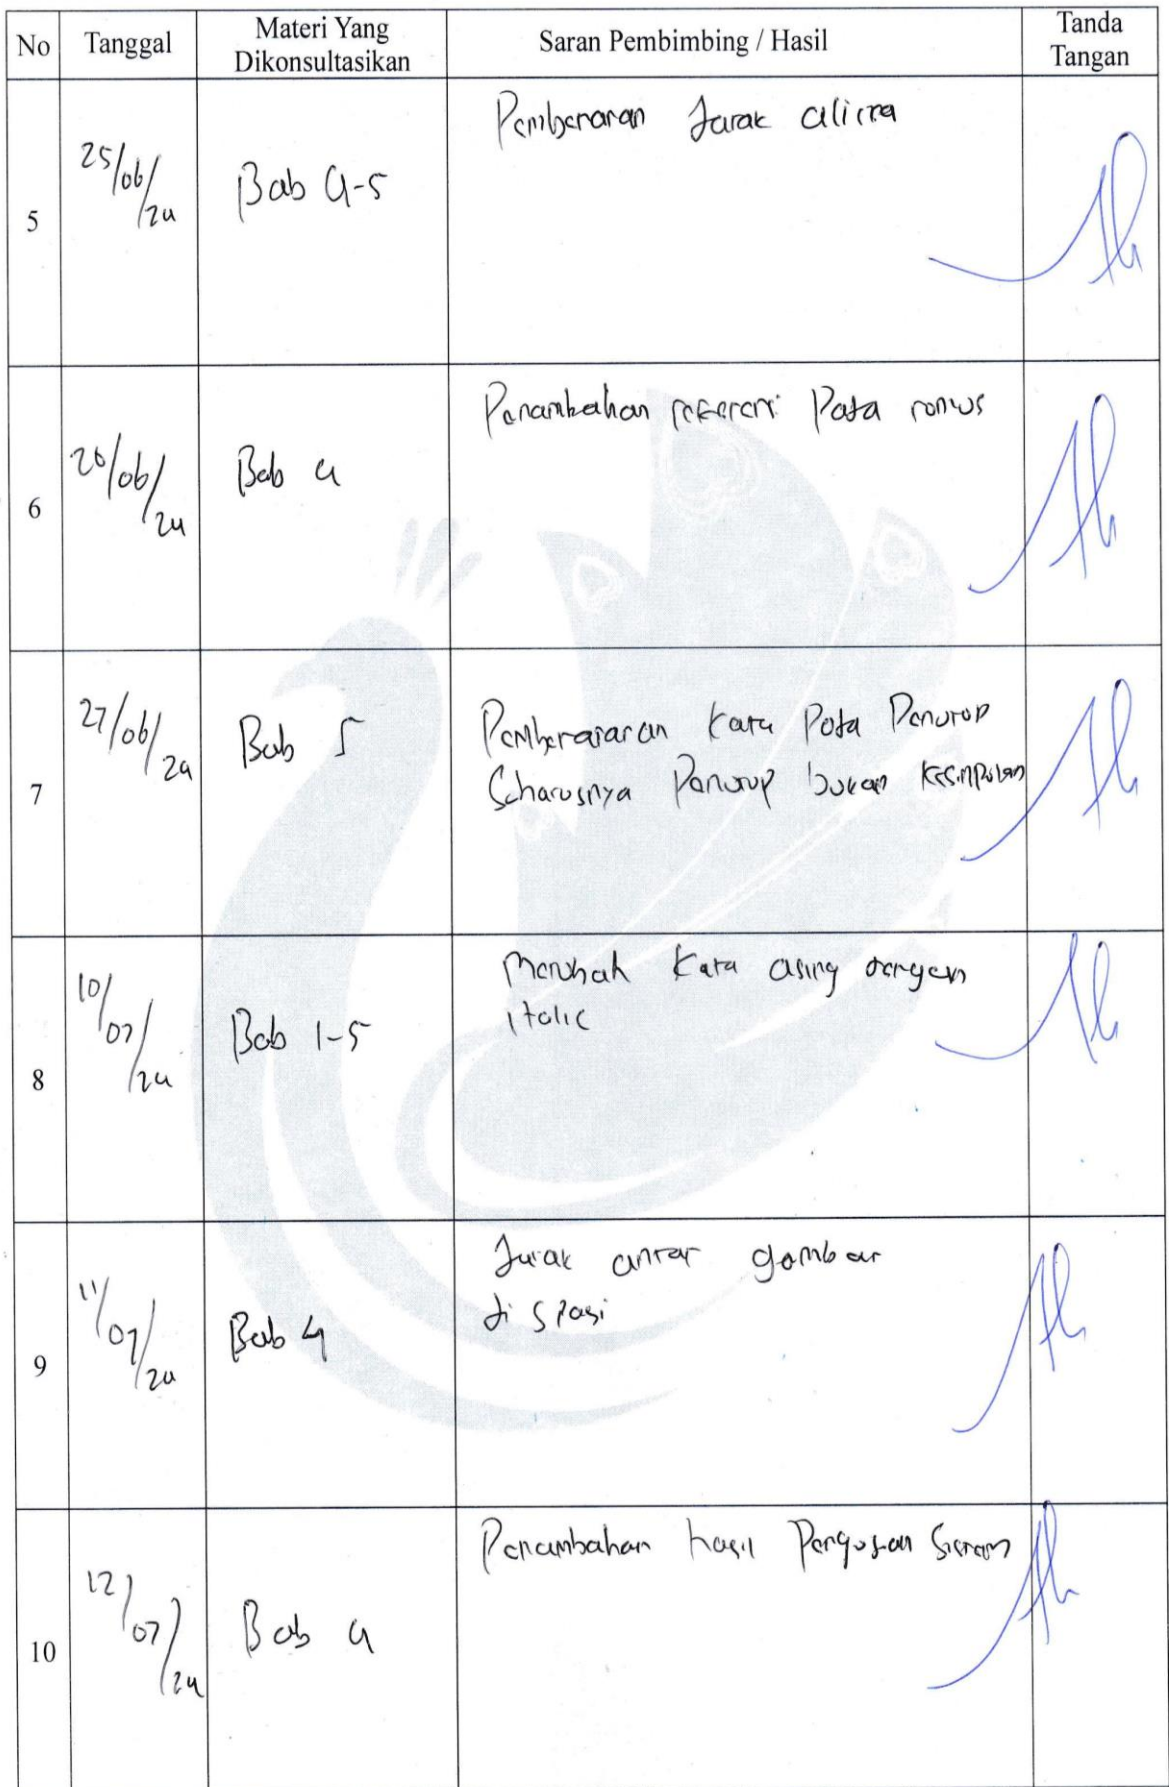 No Tanggal Materi Yang Dikonsultasikan Saran Pembimbing / Hasil Tanda Tangan
5 25/06/24 Bab 4-5 Pembenaran Jarak alinea
6 26/06/24 Bab 4 Penambahan referensi Pada rumus
7 27/06/24 Bab 5 Pembenaran kata Pada Penutup
Seharusnya Penutup bukan kesimpulan
8 10/07/24 Bab 1-5 Merubah Kata asing dengan
italic
9 11/07/24 Bab 4 Jarak antar gambar
di spasi
10 12/07/24 Bab 4 Penambahan hasil Pengujian Sistem